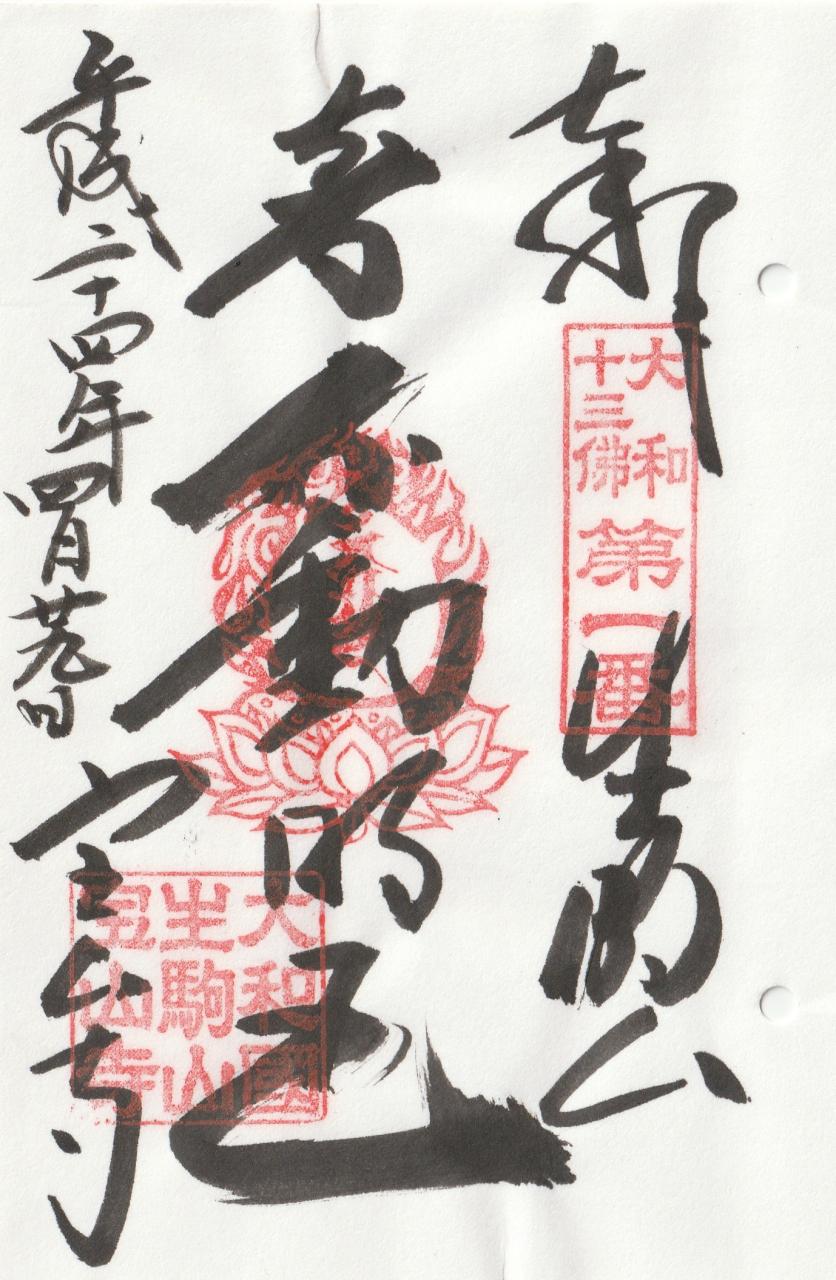 大和
十三佛
第一番
生駒山
不動明王
平成二十四年四月廿九日
宝山寺
大和國
生駒山
宝山寺